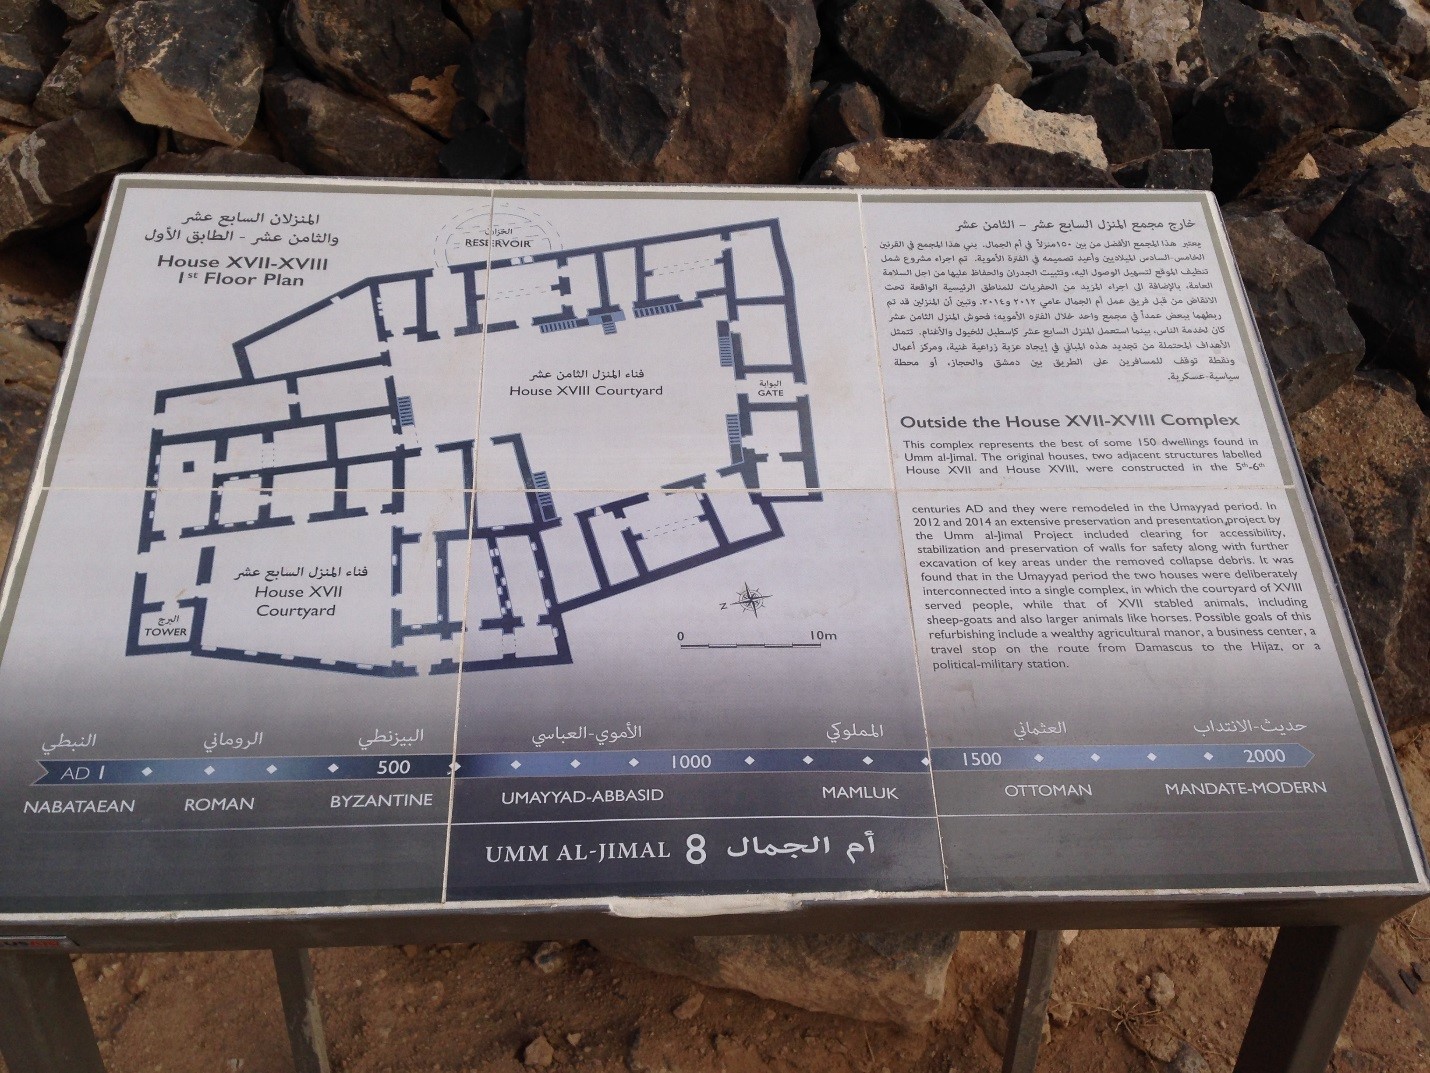 المنزلان السابع عشر
والثامن عشر - الطابق الأول
House XVII-XVIII
1st Floor Plan
الخزان
RESERVOIR
فناء المنزل الثامن عشر
House XVIII Courtyard
البوابة
GATE
فناء المنزل السابع عشر
House XVII
Courtyard
البرج
TOWER
Z
0 10m
خارج مجمع المنزل السابع عشر - الثامن عشر
يعتبر هذا المجمع الأفضل من بين ١٥٠ منزلاً في أم الجمال. بني هذا المجمع في القرنين
الخامس-السادس الميلاديين وأعيد تصميمه في الفترة الأموية. تم اجراء مشروع شمل
تنظيف الموقع لتسهيل الوصول اليه، وتثبيت الجدران والحفاظ عليها من اجل السلامة
العامة، بالإضافة الى اجراء المزيد من الحفريات للمناطق الرئيسية الواقعة تحت
الانقاض من قبل فريق عمل أم الجمال عامي ٢٠١٢ و٢٠١٤. وتبين أن المنزلين قد تم
ربطهما ببعض عمداً في مجمع واحد خلال الفتره الأمويه؛ فحوش المنزل الثامن عشر
كان لخدمة الناس، بينما استعمل المنزل السابع عشر كإسطبل للخيول والأغنام. تتمثل
الأهداف المحتملة من تجديد هذه المباني في إيجاد عزبة زراعية غنية، ومركز أعمال
ونقطة توقف للمسافرين على الطريق بين دمشق والحجاز، أو محطة
سياسية-عسكرية.
Outside the House XVII-XVIII Complex
This complex represents the best of some 150 dwellings found in
Umm al-Jimal. The original houses, two adjacent structures labelled
House XVII and House XVIII, were constructed in the 5th-6th
centuries AD and they were remodeled in the Umayyad period. In
2012 and 2014 an extensive preservation and presentation project by
the Umm al-Jimal Project included clearing for accessibility,
stabilization and preservation of walls for safety along with further
excavation of key areas under the removed collapse debris. It was
found that in the Umayyad period the two houses were deliberately
interconnected into a single complex, in which the courtyard of XVIII
served people, while that of XVII stabled animals, including
sheep-goats and also larger animals like horses. Possible goals of this
refurbishing include a wealthy agricultural manor, a business center, a
travel stop on the route from Damascus to the Hijaz, or a
political-military station.
النبطي الروماني البيزنطي الأموي-العباسي المملوكي العثماني حديث-الانتداب
AD 1 500 1000 1500 2000
NABATAEAN ROMAN BYZANTINE UMAYYAD-ABBASID MAMLUK OTTOMAN MANDATE-MODERN
UMM AL-JIMAL 8 أم الجمال